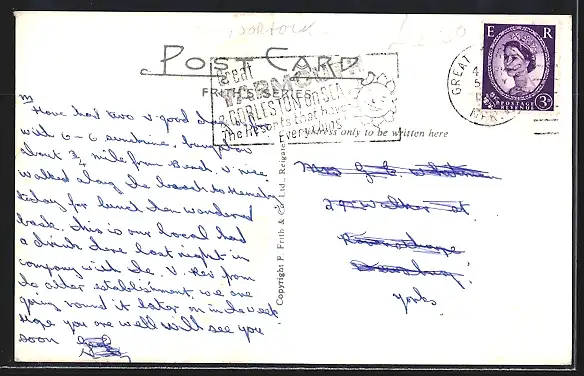 NORFOLK
POST CARD
FRITH'S SERIES
GREAT
Gt. YARMOUTH
& GORLESTON ON SEA
The Resorts that have
Everything
E R
POSTAGE
REVENUE
3D
Address only to be written here
Copyright F. Frith & Co., Ltd., Reigate
Have had two v good days
with 6-6 sunshine, bungalow
about 3/4 mile from Beach v nice
walked along the beach to Hemsby
today for lunch then wandered
back. This is our local had
a drink there last night in
company with the V. Res from
the other establishment, we are
going round it later on in the week
Hope you are well will see you
soon
Mrs
at
Yorks